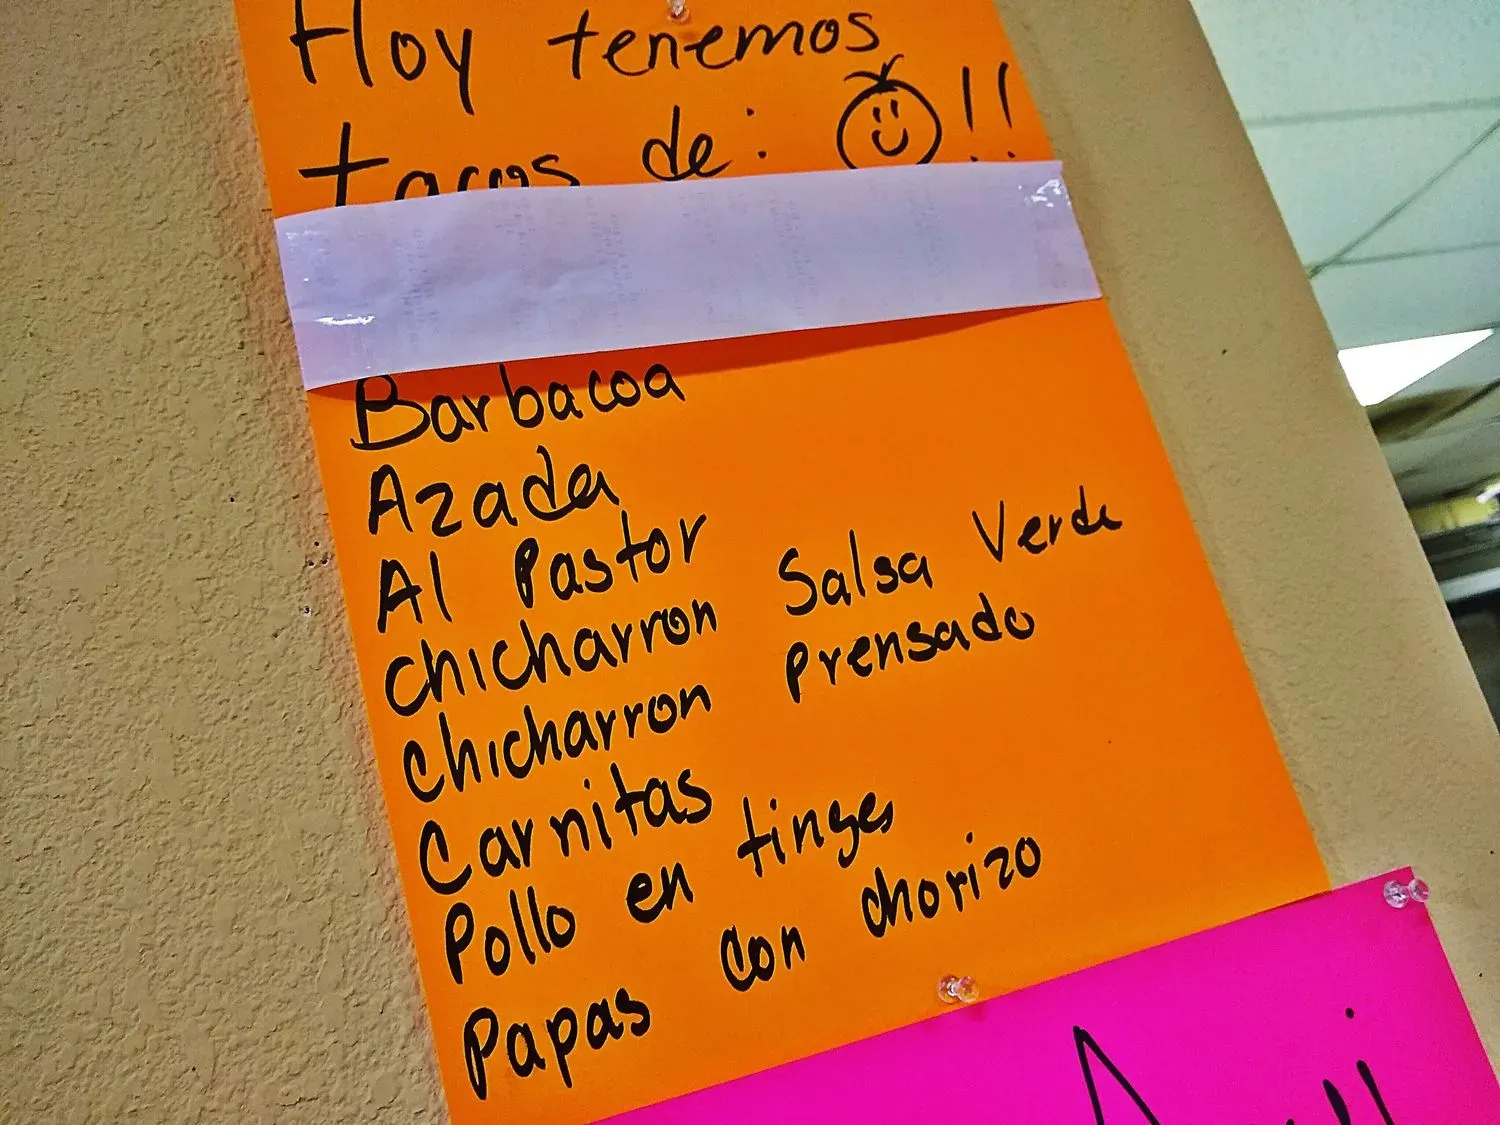 Hoy tenemos
tacos de: !!
Barbacoa
Azada
Al Pastor
Chicharron Salsa Verde
Chicharron prensado
Carnitas
Pollo en tinges
Papas con chorizo